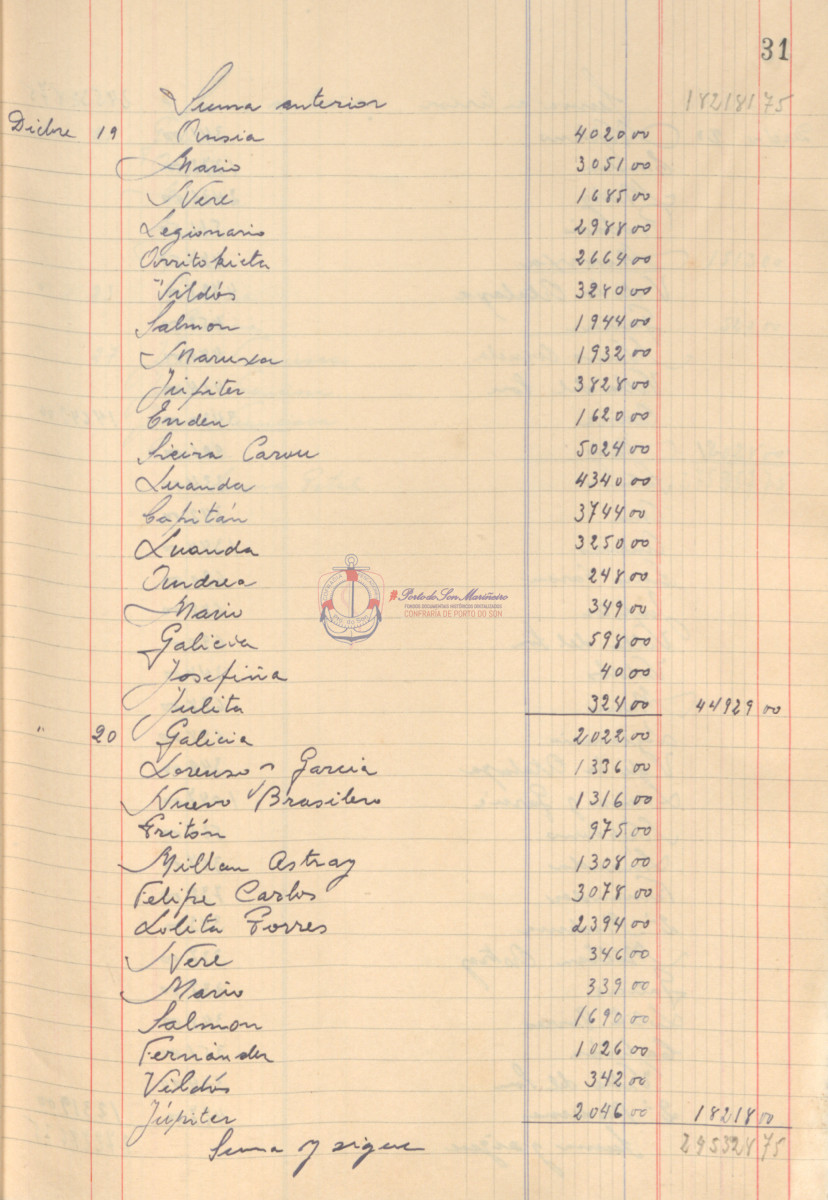 31
Suma anterior 18218175
Dicbre 19 Ousia 4020 00
Mario 3051 00
Nere 1685 00
Legionario 2988 00
Orritokieta 2664 00
Vildós 3280 00
Salmon 1944 00
Maruxa 1932 00
Júpiter 3828 00
Enden 1620 00
Sieira Carou 5024 00
Luanda 4340 00
Capitán 3744 00
Luanda 3250 00
Andrea 248 00
Mario 349 00
Galicia 598 00
Josefiña 40 00
Julita 324 00 44929 00
" 20 Galicia 2022 00
Lorenzo y Garcia 1336 00
Nuevo Brasilero 1316 00
Tritón 975 00
Millan Astray 1308 00
Felipe Carlos 3078 00
Lolita Torres 2394 00
Nere 346 00
Mario 339 00
Salmon 1690 00
Fernánder 1026 00
Vildós 342 00
Júpiter 2046 00 18218 00
Suma y sigue 24532875
#PortodoSonMariñeiro
FONDOS DOCUMENTAIS HISTÓRICOS DIXITALIZADOS
CONFRARÍA DE PORTO DO SON